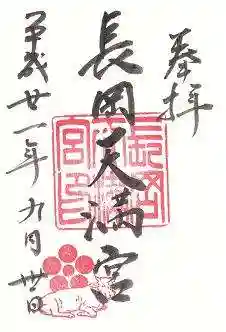 奉拝
長岡天満宮
平成廿一年九月卅日
長岡天満宮印